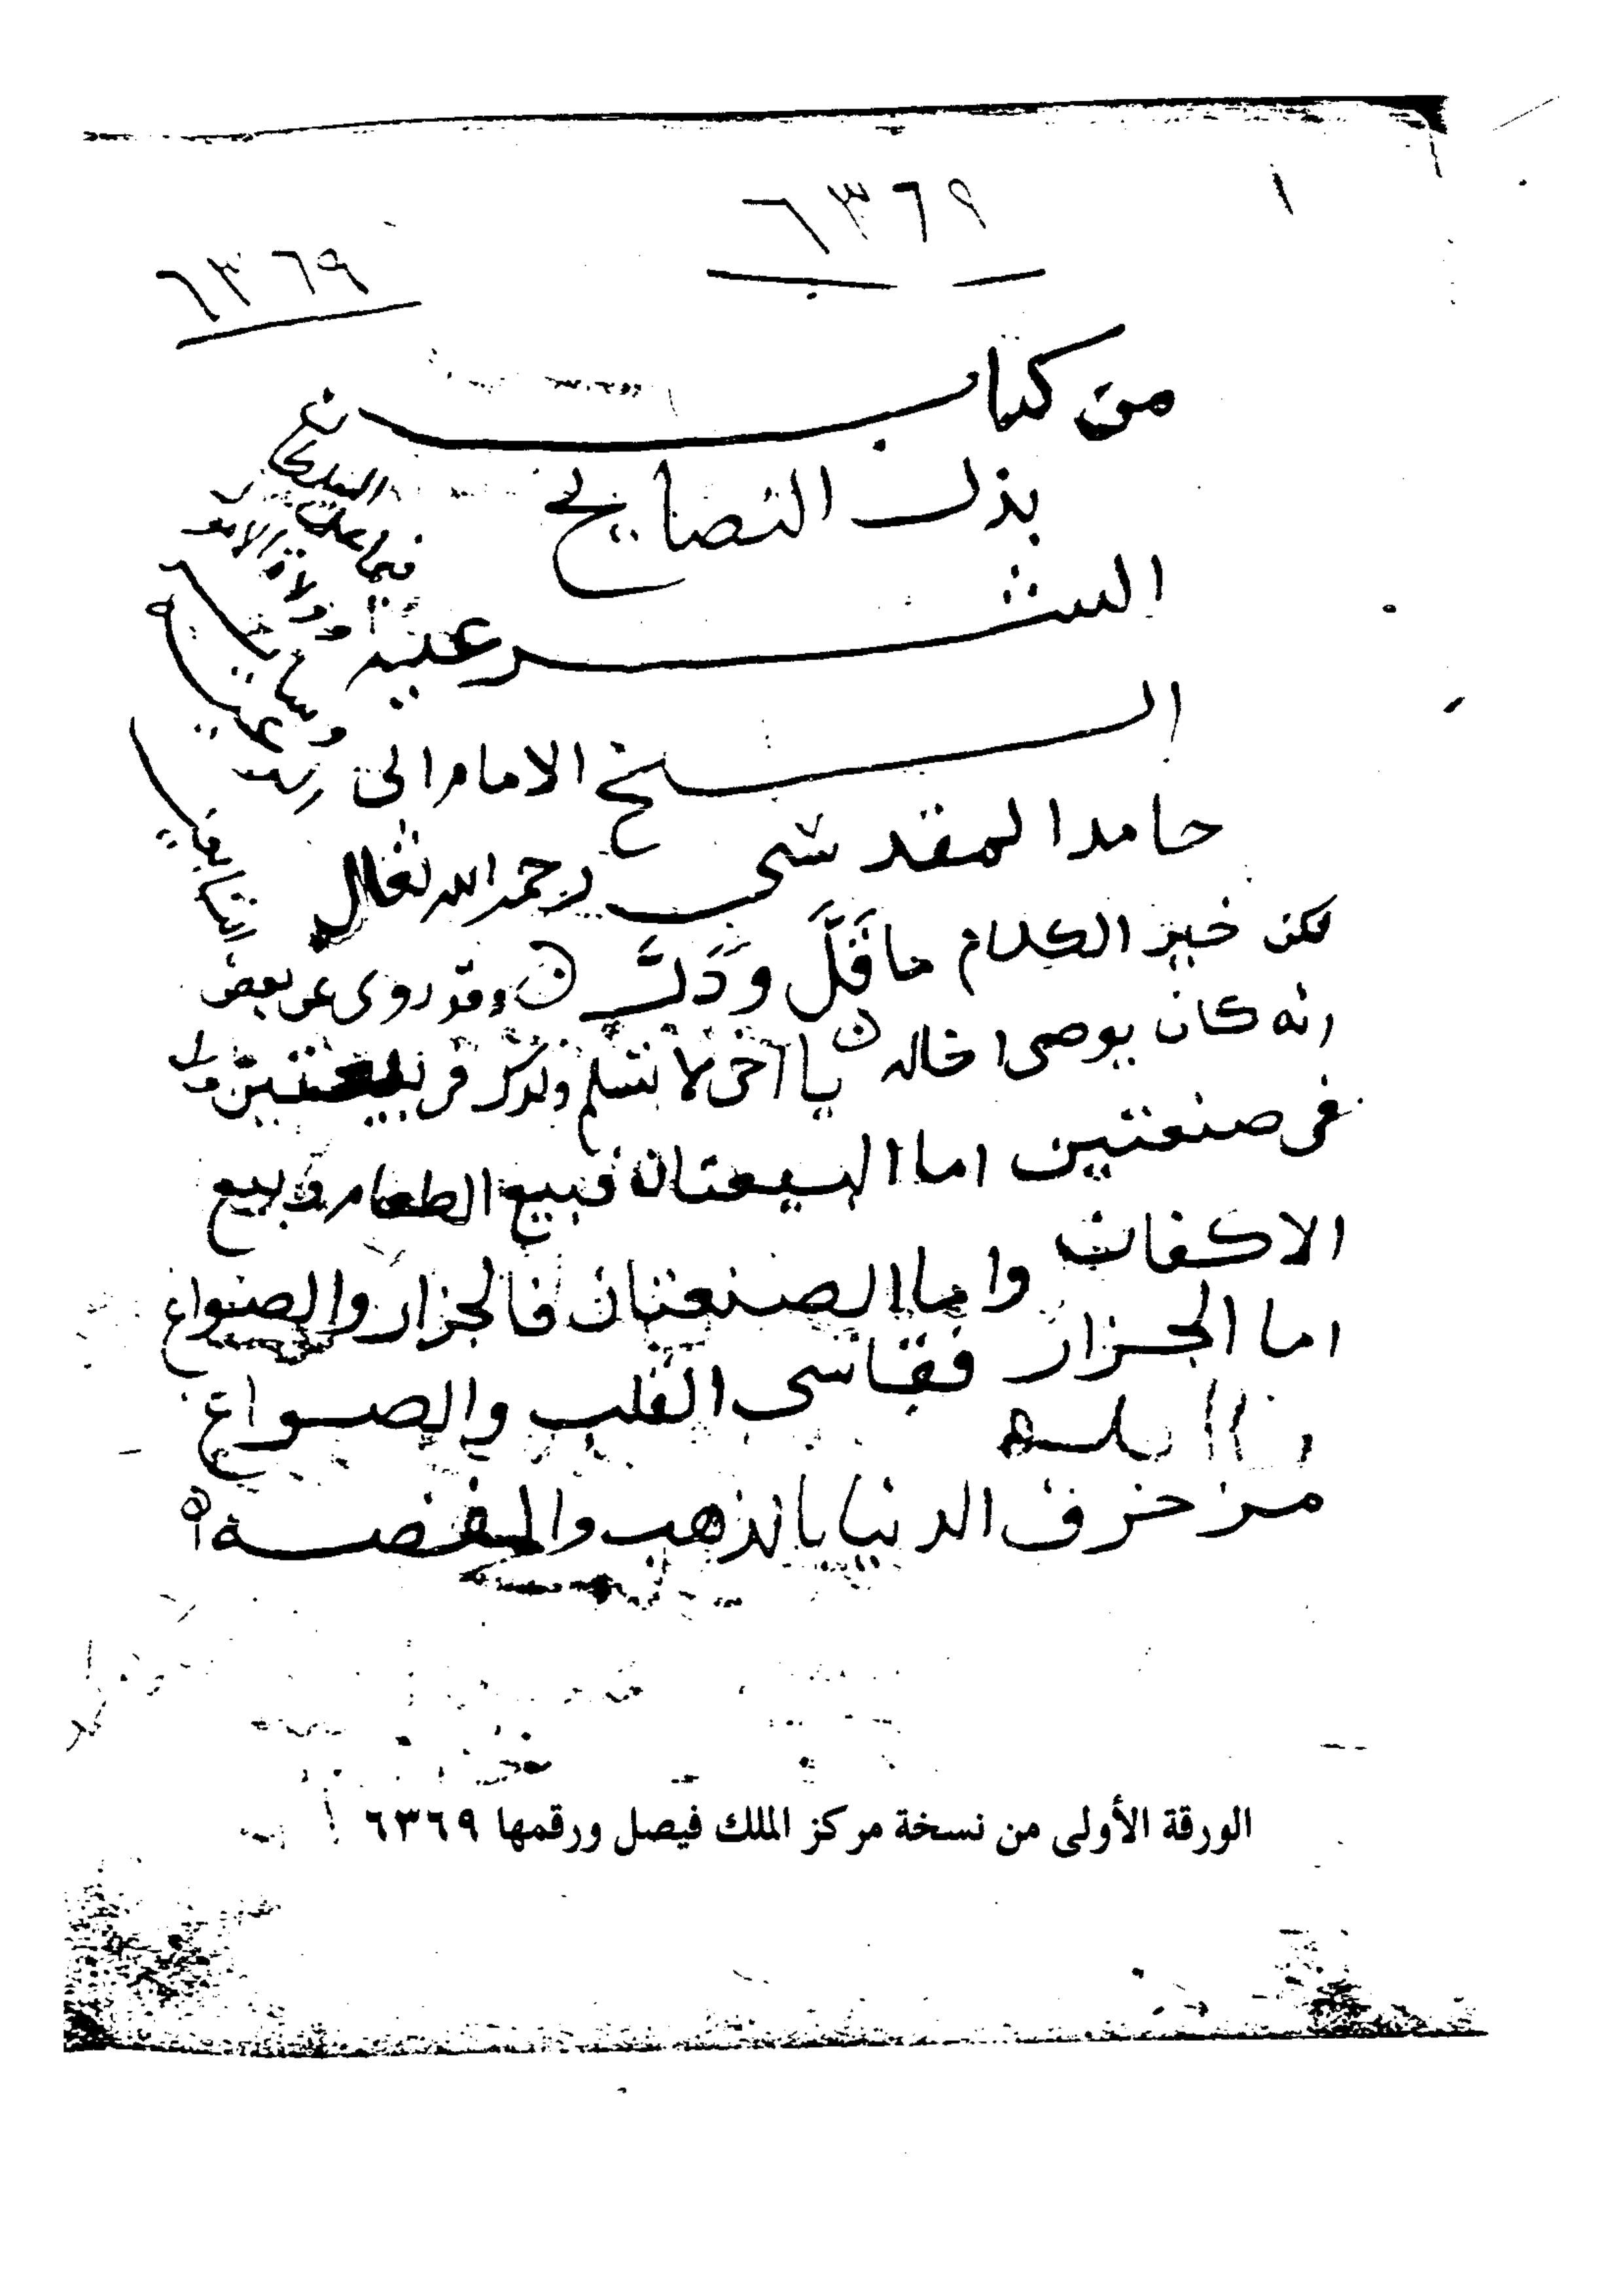 ١
٦٣٦٩
٦٣٦٩
من كتاب
بذل النصايح
الشرعية
فيما على
ولاة الامور
وساير
الشيخ الامام ابي
حامد المقدسي رحمه الله تعالى
فكن خير الكلام ما قَلَّ وَدَلَّ وقد روى عن بعض
انه كان يوصى اخاله يا اخى لا تسلم ولدك فى بيعتين ولا
فى صنعتين اما البيعتان فبيع الطعام وبيع
الاكفان واما الصنعتان فالجزار والصواغ
اما الجزار فقاسى القلب والصواغ
مزخرف الدنيا بالذهب والفضة
الورقة الأولى من نسخة مركز الملك فيصل ورقمها ٦٣٦٩